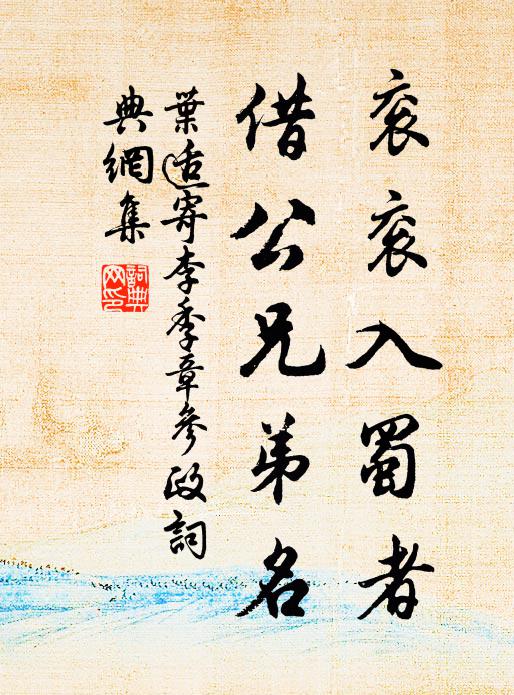 衮衮入蜀者
借公兄弟名
葉适寄李季章參政詞
典網集
詞典網印